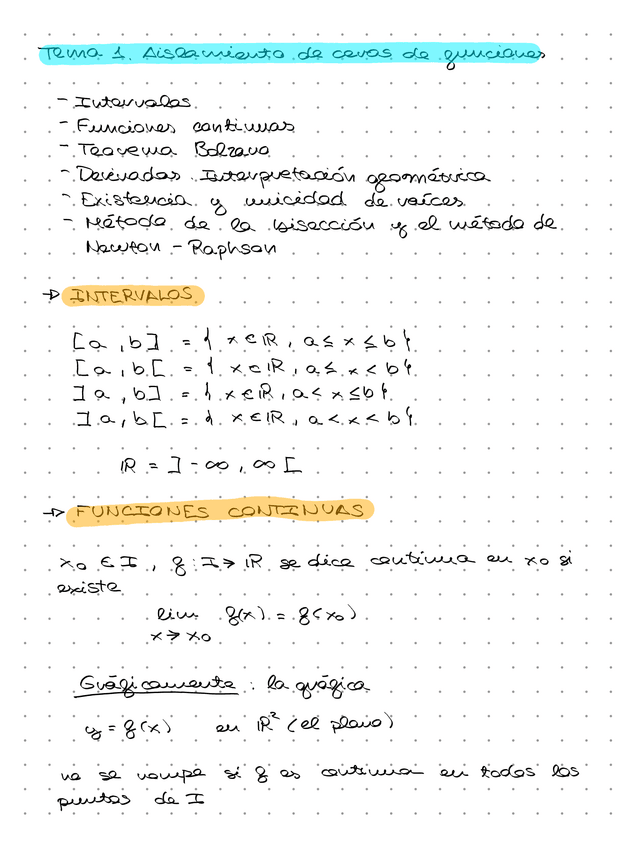 Tema 1. Aislamiento de ceros de funciones
- Intervalos
- Funciones continuas
- Teorema Bolzano
- Derivadas. Interpretación geométrica
- Existencia y unicidad de raíces
- Método de la bisección y el método de
Newton - Raphson
→ INTERVALOS
[a, b] = { x ∈ ℝ, a ≤ x ≤ b }
[a, b[ = { x ∈ ℝ, a ≤ x < b }
]a, b] = { x ∈ ℝ, a < x ≤ b }
]a, b[ = { x ∈ ℝ, a < x < b }
ℝ = ]-∞, ∞[
→ FUNCIONES CONTINUAS
x₀ ∈ I, f: I → ℝ se dice continua en x₀ si
existe
lim f(x) = f(x₀)
x → x₀
Gráficamente: la gráfica
y = f(x) en ℝ² (el plano)
no se rompe si f es continua en todos los
puntos de I